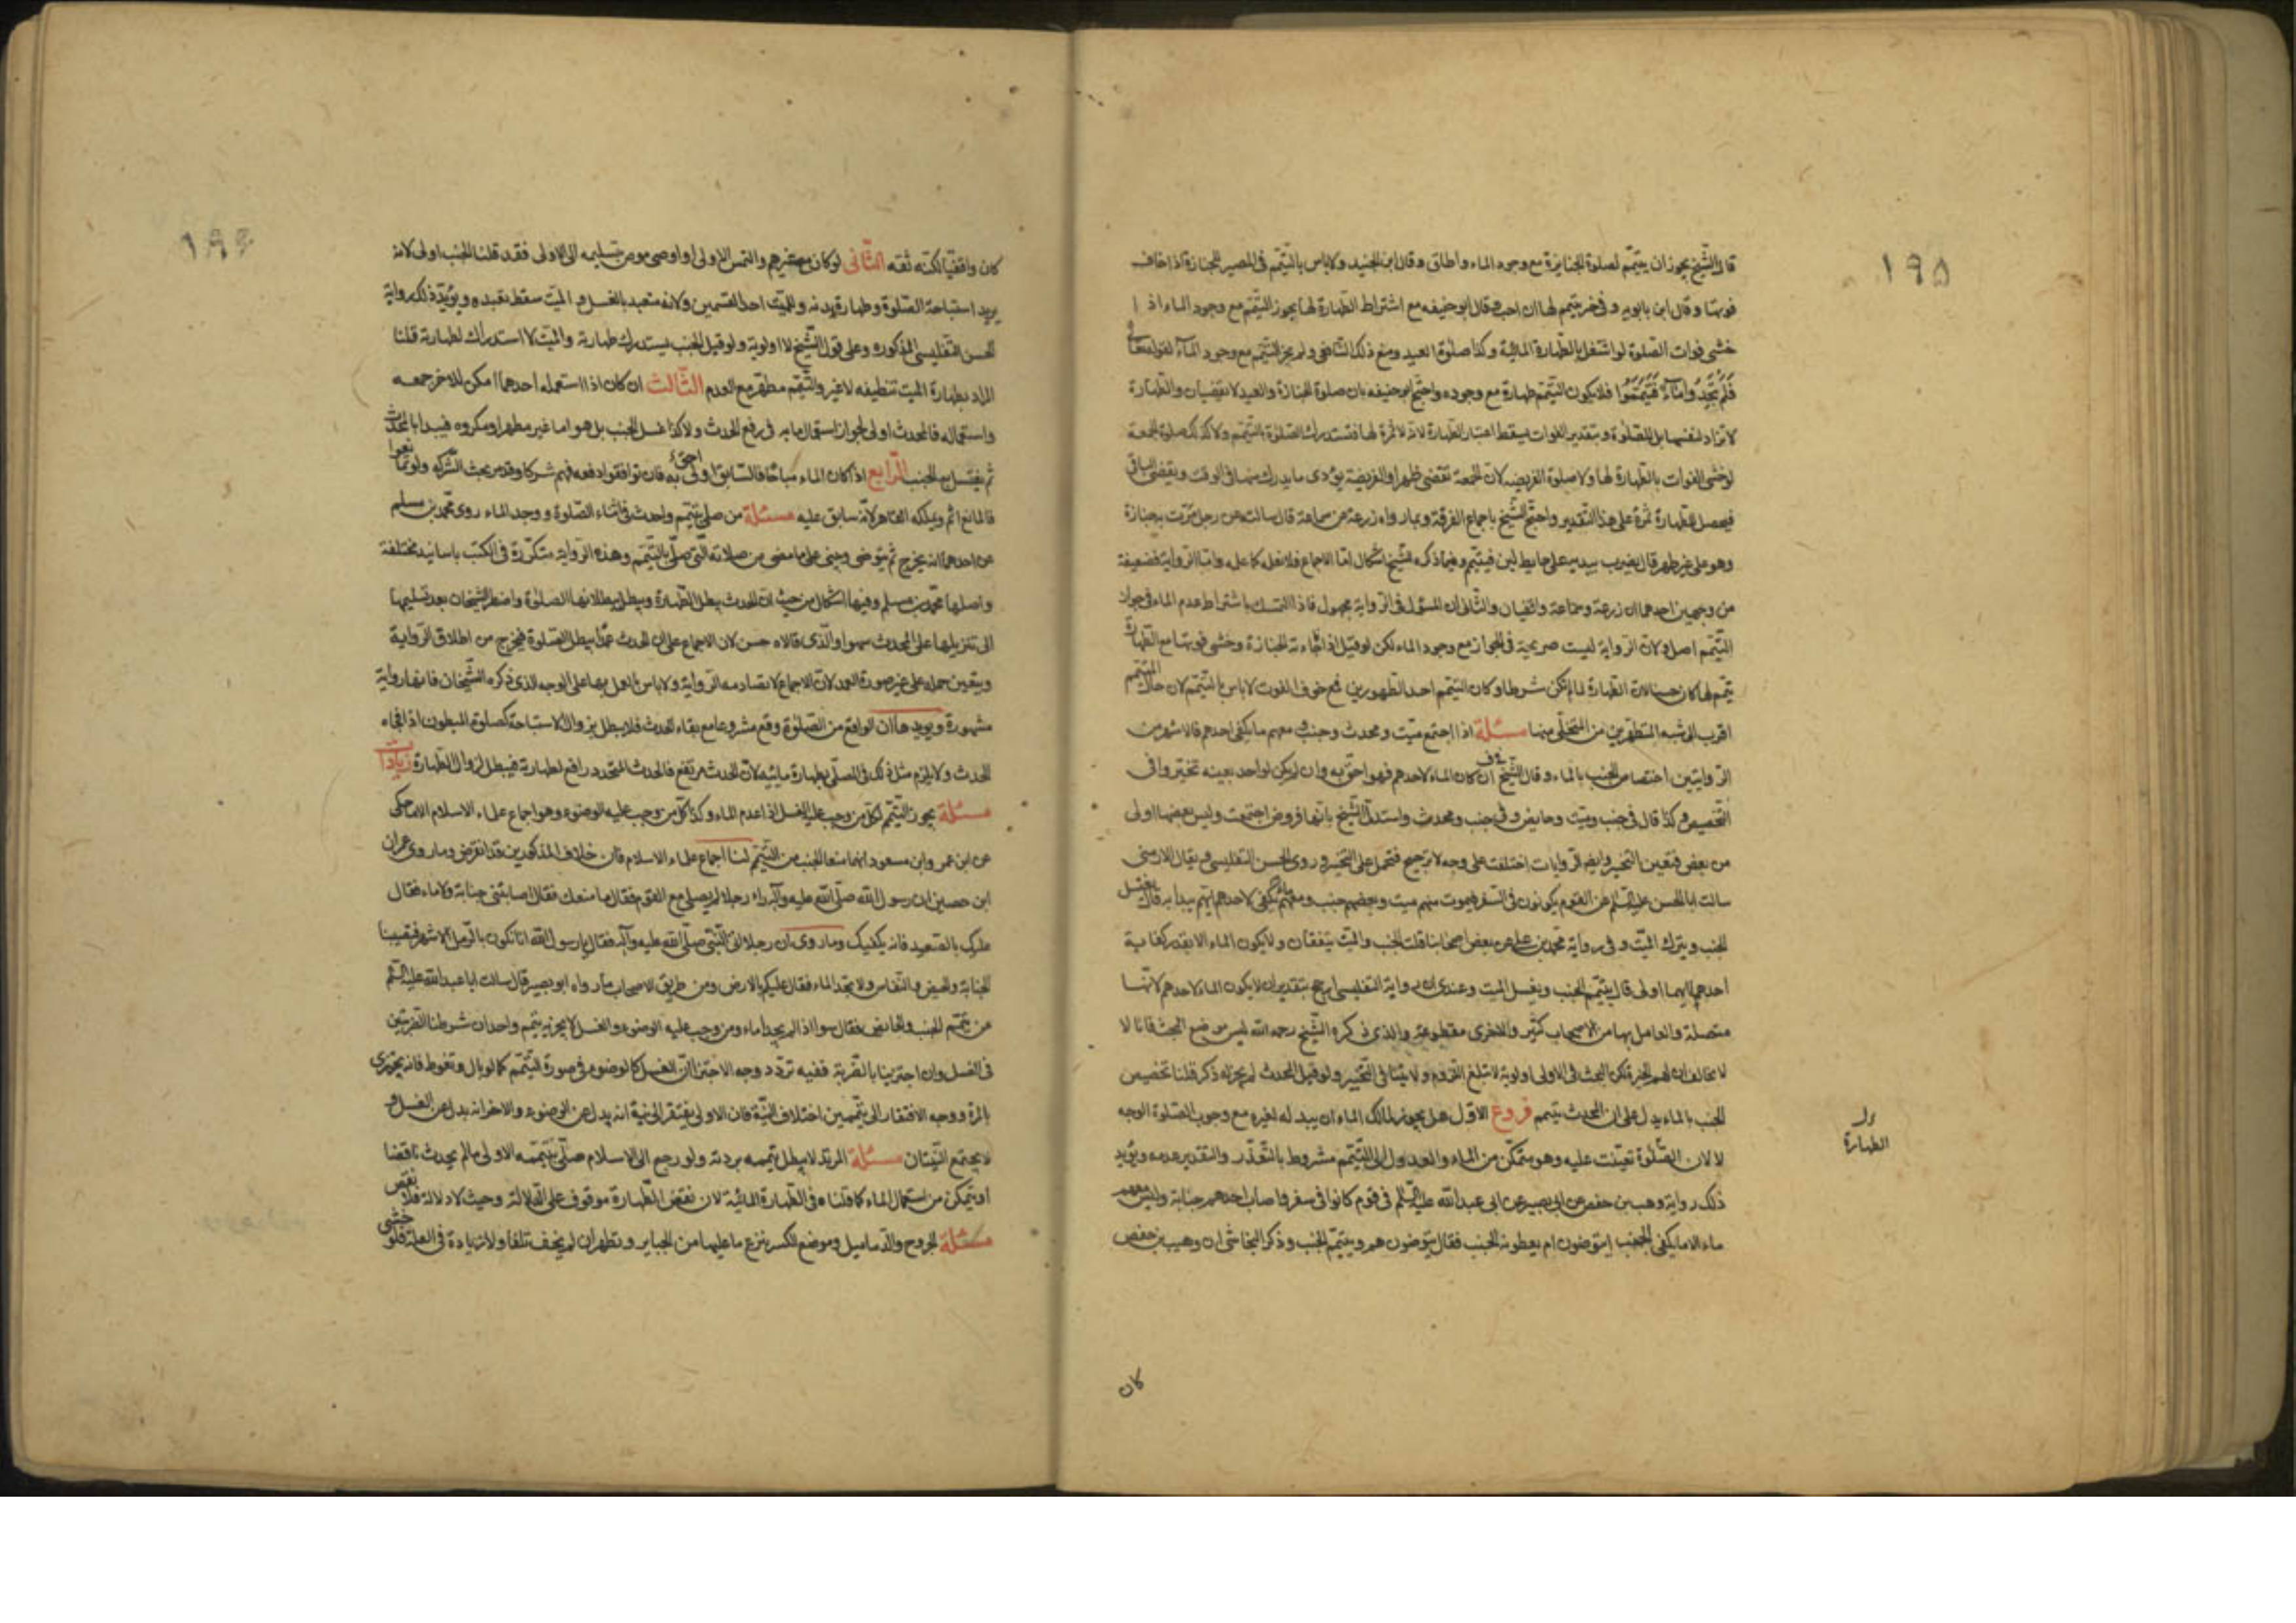 ۱۹۵
قال الشيخ يجوز ان يتيمم لصلوة الجنايزة مع وجود الماء واطلق وقال ابن الجنيد ولا باس بالتيمم في المصير للجنازة اذا خاف
فوتها وقال ابن بابويه وفي خبر يتيمم لها ان احب وقال ابو حنيفه مع اشتراط الطهارة لها يجوز التيمم مع وجود الماء اذ ا
خشى فوات الصلوة لو اشتغل بالطهارة المائية وكذا صلوة العيد ومنع ذلك الشافعي ولم يجز التيمم مع وجود الماء لقوله تعالى
فَلَمْ تَجِدُوا مَاءً فَتَيَمَّمُوا فلا يكون التيمم طهارة مع وجوده واحتج ابو حنيفه بان صلوة الجنازة والعيد لا تقضيان والطهارة
لا تراد لنفسها بل للصلوة وبتقدير الفوات يسقط اعتبار الطهارة لانه لا ثمرة لها فتستدرك الصلوة بالتيمم ولا كذلك صلوة الجمعة
لو خشى الفوات بالطهارة لها ولا صلوة الفريضه لان الجمعة تقضى ظهرا والفريضة يؤدى ما يدرك منها في الوقت ويقضى الباقى
فيحصل للطهارة ثمرة على هذا التقدير واحتج الشيخ باجماع الفرقة وبما رواه زرعة عن سماعة قال سالته عن رجل مرت به جنازة
وهو على غير طهر قال يضرب بيديه على حايط لبن فيتيمم وفيما ذكره الشيخ اشكال اما الاجماع فلا نعلمه كما علمه واما الرواية فضعيفة
من وجهين احدهما ان زرعة وسماعة واقفيان والثاني ان المسؤل في الرواية مجهول فاذا التمسك باشتراط عدم الماء في جواز
التيمم اصل ولان الرواية ليست صريحة في الجواز مع وجود الماء لكن لو قيل اذا فاجاءته الجنازة وخشى فوتها مع الطهارة
تيمم لها كان حسنا لان الطهارة لما لم تكن شرطا وكان التيمم احد الطهورين فمع خوف الفوت لا باس بالتيمم لان حال المتيمم
اقرب الى شبه المتطهرين من المتخلى منها مسئلة اذا اجتمع ميت ومحدث وجنب ومعهم ما يكفى احدهم فالاشهر من
الروايتين اختصاص الجنب بالماء وقال الشيخ في ف ان كان الماء لاحدهم فهو احق به وان لم يكن لواحد بعينه تخيروا في
التخصيص وكذا قال في جنب وميت وحايض وفي جنب ومحدث واستدل الشيخ بانها فروض اجتمعت وليس بعضها اولى
من بعض فتعين التخيير وايضا الروايات اختلفت على وجه لا ترجيح فتحمل على التخيير وروى الحسن التفليسى ويقال الارمنى
سالت ابا الحسن عليه السلم عن القوم يكونون في السفر فيموت منهم ميت وبعضهم جنب ومعهم ماء يكفى لاحدهم ايهم يبدا به قال يغتسل
الجنب ويترك الميت وفي رواية محمد بن على عن بعض اصحابنا قلت الجنب والميت يتفقان ولا يكون الماء الا بقدر كفاية
احدهما ايهما اولى قال يتيمم الجنب ويغسل الميت وعندى ان رواية التفليسى ارجح بتقدير ان لا يكون الماء لاحدهم لانها
متصلة والعامل بها من الاصحاب كثير والاخرى مقطوعة والذى ذكره الشيخ رحمه الله ليس موضع البحث فانا لا
نخالف ان لهم الخيرة لكن البحث في الاولى اولوية لا تبلغ اللزوم ولا ينافى التخيير ولو قيل المحدث لم يجر له ذكر قلنا تخصيص
الجنب بالماء يدل على ان المحدث يتيمم فروع الاول هل يجوز لمالك الماء ان يبدله لغيره مع وجوب الصلوة الوجه
لا لان الصلوة تعينت عليه وهو متمكن من الماء والعدول الى التيمم مشروط بالتعذر والتقدير عدمه ويؤيد
ذلك رواية وهب بن حفص عن ابى بصير عن ابى عبد الله عليه السلم في قوم كانوا في سفر فاصاب احدهم جنابة وليس معهم
ماء الا ما يكفى الجنب ايتوضون ام يعطونه الجنب فقال يتوضون هم ويتيمم الجنب وذكر النجاشى ان وهيب بن حفص
الطهارة
كان
كان واقفيا لكنه ثقه الثانى لو كان مع غيرهم والتمس الاولى او اوصى موص بتسليمه الى الاولى فقد قلنا الجنب اولى لانه
يريد استباحة الصلوة وطهارة بدنه وللميت احد القسمين ولانه متعبد بالغسل والميت سقط تعبده ويؤيد ذلك رواية
الحسن التفليسى المذكوره وعلى قول الشيخ لا اولوية ولو قيل الجنب يستدرك طهارة والميت لا استدراك لطهارته قلنا
المراد بطهارة الميت تنظيفه لا غير والتيمم مطهر مع العدم الثالث ان كان اذا استعمله احدهما امكن للاخر جمعه
واستعماله فالمحدث اولى لجواز استعمال مائه في رفع الحدث ولا كذا غسل الجنب بل هو اما غير مطهر او مكروه فيبدا بالمحدث
ثم يغتسل به الجنب الرابع اذا كان الماء مباحا فالسابق اولى احق به فان توافقوا دفعه فهم شركا وقد مر بحث الشركه ولو تمانعوا
فالمانع اثم ويملكه القاهر لانه سابق عليه مسئلة من صلى بتيمم واحدث في اثناء الصلوة ووجد الماء روى محمد بن مسلم
عن احدهما انه يخرج ثم يتوضى ويبنى على ما مضى من صلاته التى صلى بالتيمم وهذه الرواية متكررة في الكتب باسانيد مختلفة
واصلها محمد بن مسلم وفيها اشكال من حيث ان الحدث يبطل الطهارة ويبطل ببطلانها الصلوة واضطر الشيخان بعد تسليمها
الى تنزيلها على المحدث سهوا والذى قالاه حسن لان الاجماع على ان الحدث عمدا يبطل الصلوة فيخرج من اطلاق الرواية
ويتعين حمله على غير صورة العمد لان الاجماع لا تصادمه الرواية ولا باس بالعمل بها على الوجه الذى ذكره الشيخان فانها رواية
مشهورة ويؤيدها ان الواقع من الصلوة وقع مشروعا مع بقاء الحدث فلا يبطل بزوال الاستباحة كصلوة المبطون اذا فجاه
الحدث ولا يلزم مثل ذلك في المصلى بطهارة مائيه لان الحدث مرتفع فالحدث المتجدد رافع لطهارته فيبطل لزوال الطهارة زيادات
مسئلة يجوز التيمم لكل من وجب عليه الغسل اذا عدم الماء وكذا كل من وجب عليه الوضوء وهو اجماع علماء الاسلام الا ما حكى
عن ابن عمر وابن مسعود انهما منعا الجنب من التيمم لنا اجماع علماء الاسلام فان خلاف المذكورين قد انقرض وما روى عمران
ابن حصين ان رسول الله صلى الله عليه وآله راء رجلا لم يصلى مع القوم فقال ما منعك فقال اصابتنى جنابة ولا ماء فقال
عليك بالصعيد فانه يكفيك وما روى ان رجلا اتى النبى صلى الله عليه وآله فقال يا رسول الله انا نكون بالرمل الاشهر فتصيبنا
الجنابة والحيض والنفاس ولا نجد الماء فقال عليكم بالارض ومن طريق الاصحاب ما رواه ابو بصير قال سالت ابا عبد الله عليه السلم
عن تيمم الجنب والحائض فقال سوا اذا لم يجدا ماء ومن وجب عليه الوضوء والغسل لا يجزيه تيمم واحد ان شرطنا الضربتين
في الغسل وان اجتزينا بالضربة ففيه تردد وجه الاجتزا ان الغسل كالوضوء في صورة التيمم كما لو بال وتغوط فانه يجتزى
بالمرة ووجه الافتقار الى تيممين اختلاف النية فان الاولى يفتقر الى نية انه بدل عن الوضوء والاخر انه بدل عن الغسل و
لا يجتمع النيتان مسئلة المرتد لا يبطل تيممه بردته ولو رجع الى الاسلام صلى بتيممه الاولى ما لم يحدث ناقضا
او يتمكن من استعمال الماء كما قلناه في الطهارة المائية لان نقض الطهارة موقوف على الدلالة وحيث لا دلالة فلا نقض
مسئلة الجروح والدماميل وموضع الكسر ينزع ما عليها من الجباير وتطهر ان لم يخف تلفا ولا زيادة في العلة فلو خشى